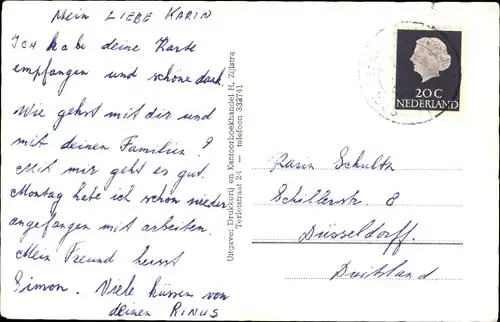 Mein LIEBE KARIN
Ich habe deine Karte
empfangen und schöne dank.
Wie gehst mit dir und
mit deinen Familien?
Mit mir geht es gut.
Montag habe ich schon wieder
angefangen mit arbeiten.
Mein Freund heisst
Simon. Viele küssen von
deinen RINUS
Uitgave: Drukkerij en Kantoorboekhandel H. Zijlstra
Terletstraat 24 — telefoon 332741
20 C
NEDERLAND
Karin Schultz
Schillerstr. 8
Düsseldorff.
Duitsland